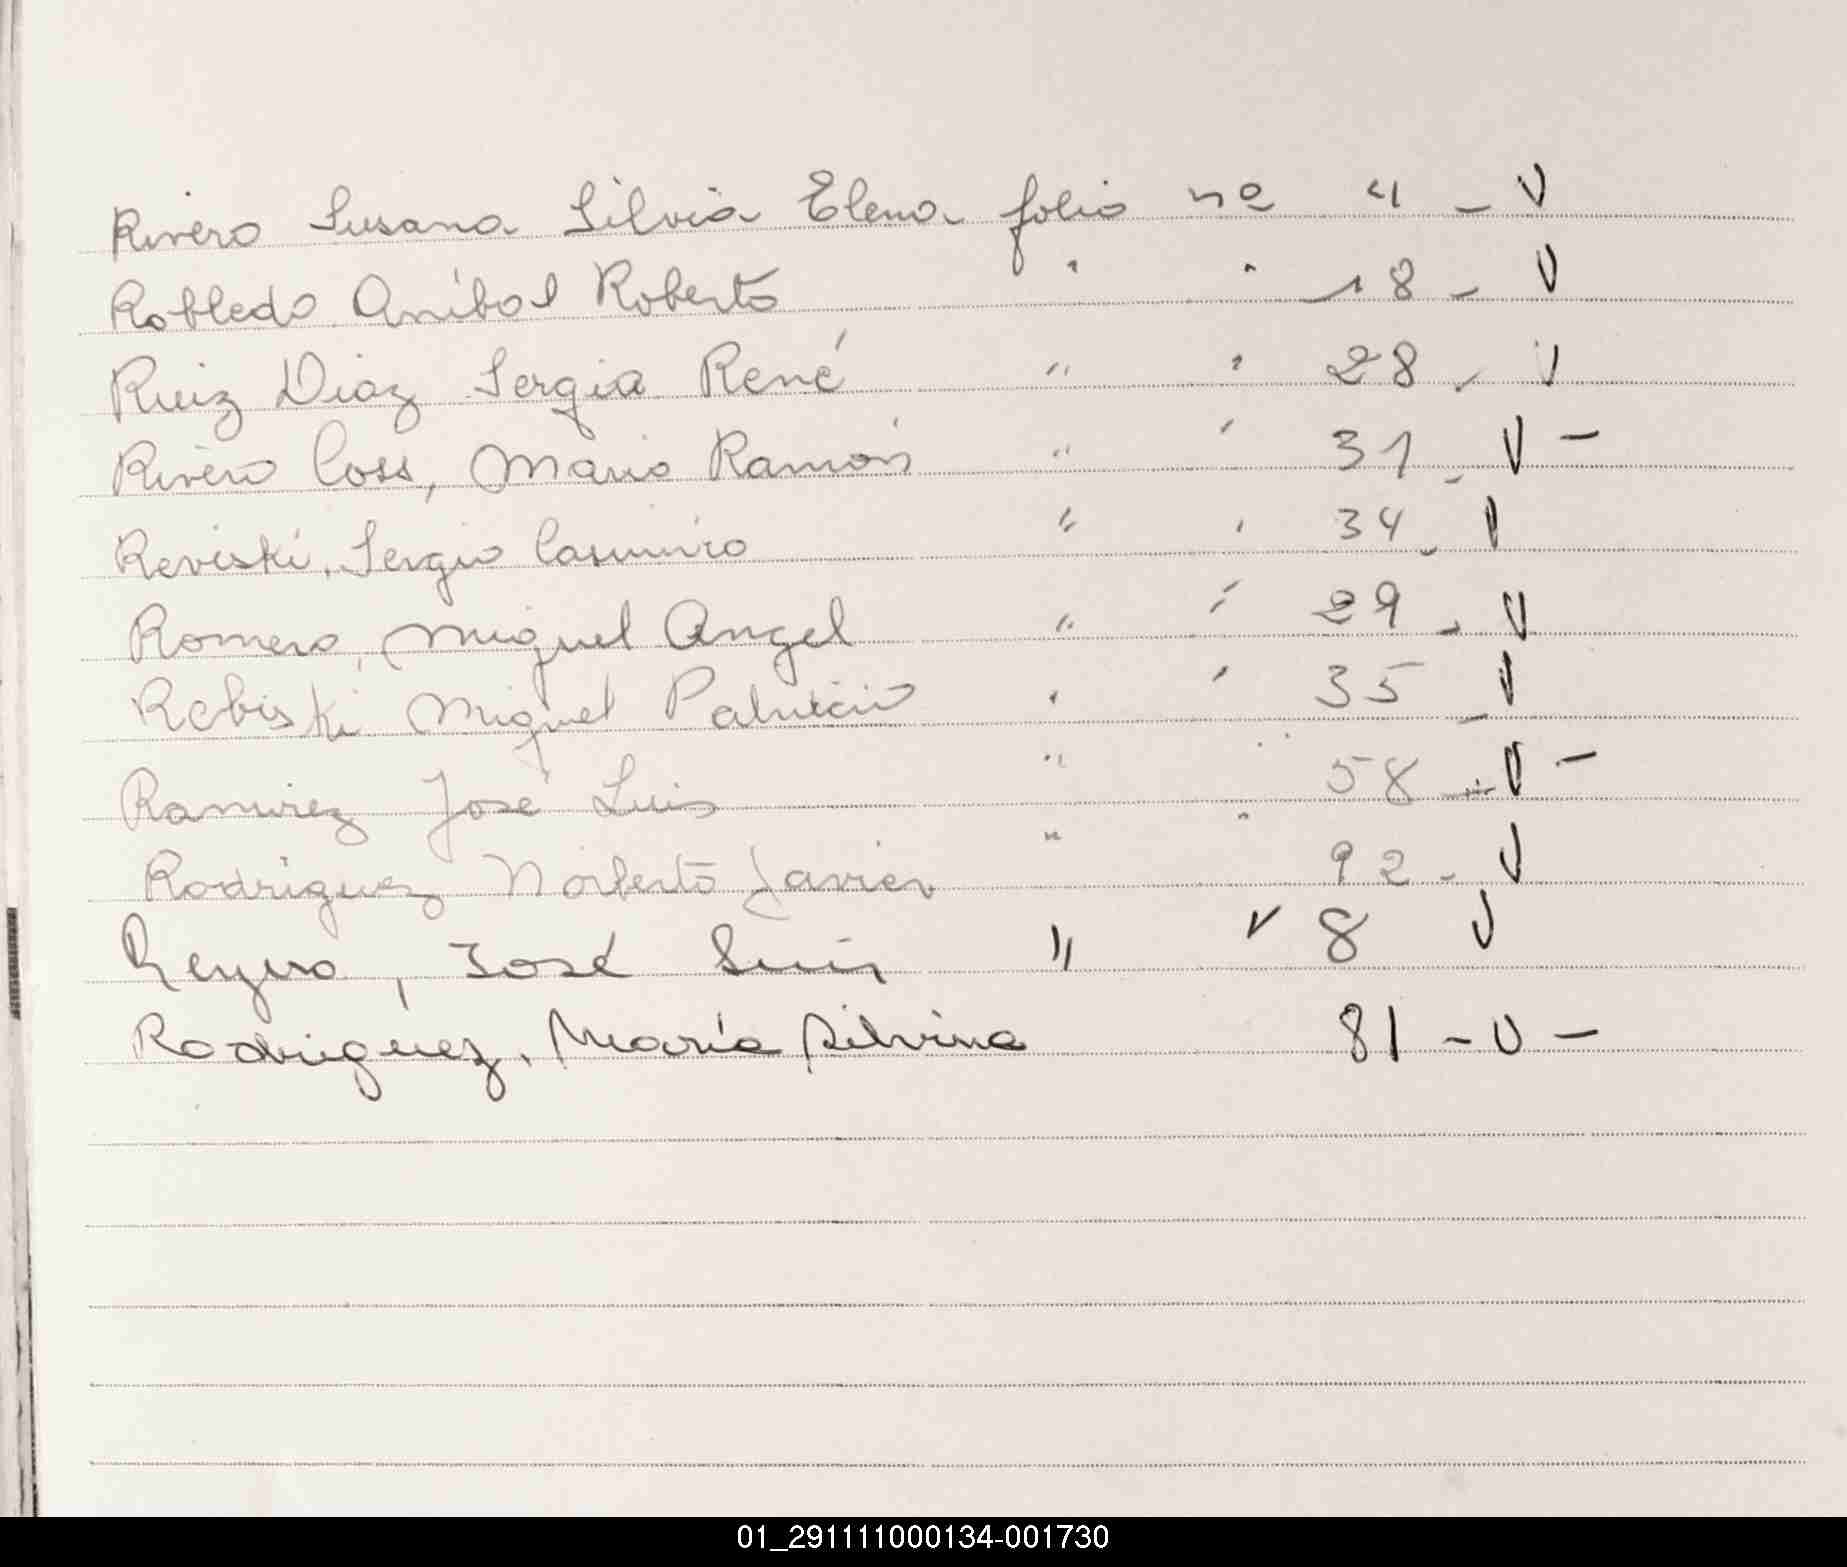 Rivero Susana Silvia Elena folio nº 4 - V
Robledo Aníbal Roberto " " 18 - V
Ruiz Diaz Sergia René " " 28 - V
Rivero Coss, Mario Ramón " " 31 - V -
Reviski, Sergio Casimiro " " 34 - V
Romero, Miguel Angel " " 29 - V
Rebiski Miguel Patricio " " 35 - V
Ramirez José Luis " " 58 - V -
Rodriguez Norberto Javier " " 92 - V
Reyero, José Luis " " 8 V
Rodriguez, María Silvina 81 - V -
01_291111000134-001730